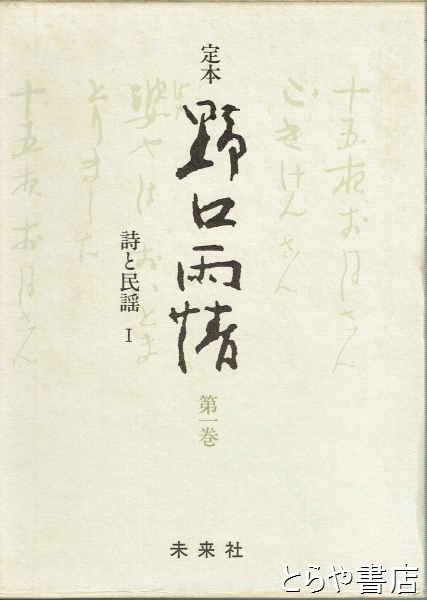 定本
野口雨情
第一巻
詩と民謡 I
未来社
十五夜お月さん
ごきげんさん
婆やは おいとま
とりました
十五夜お月さん
とらや書店